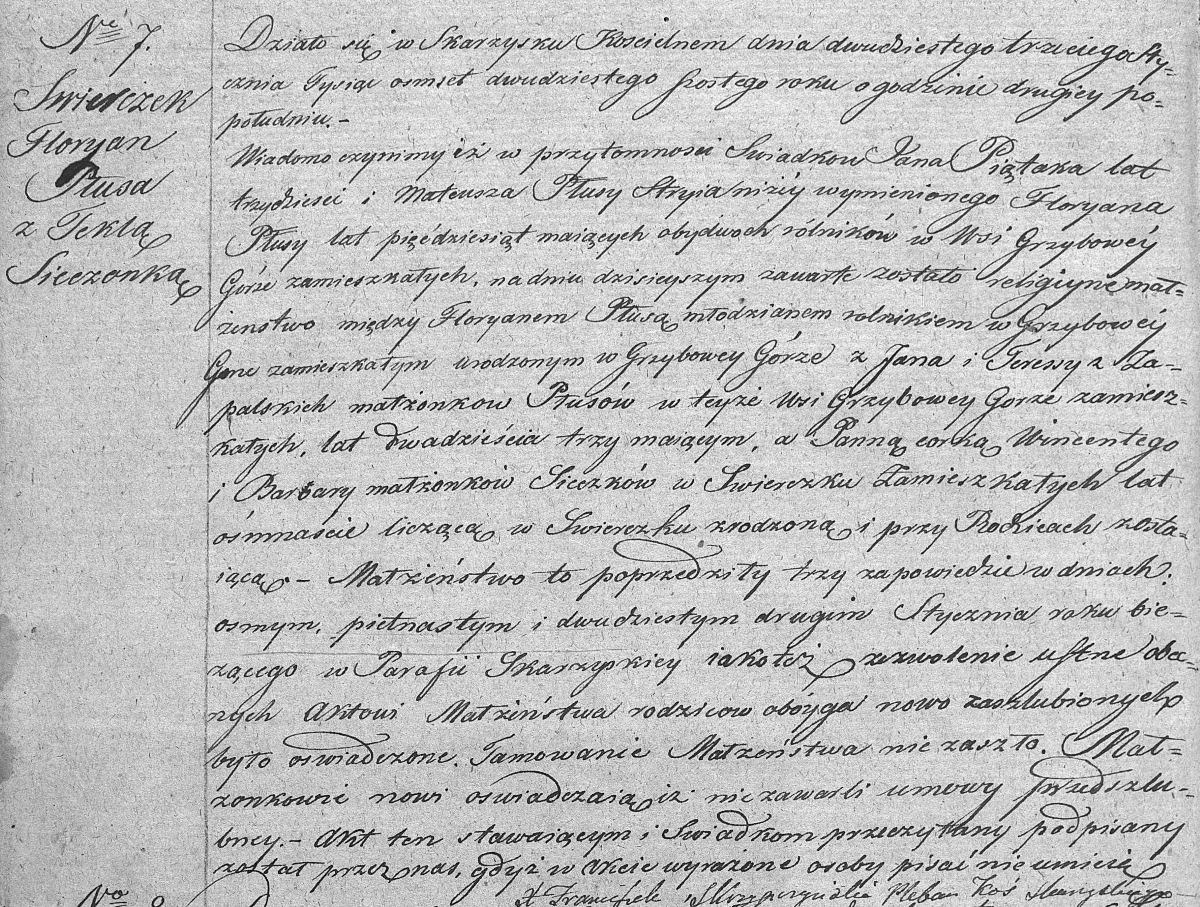 Nre 7.
Swierczek
Floryan
Płusa
z Teklą
Sieczonką
Działo się w Skarzysku Koscielnem dnia dwudziestego trzeciego Sty-
cznia Tysiąc osmset dwudziestego szostego roku o godzinie drugiey po-
południu.-
Wiadomo czynimy iż w przytomnosci Swiadkow Jana Piątaka lat
trzydziesci i Mateusza Płusy Stryia niżéy wymienionego Floryana
Płusy lat pięćdziesiąt maiących obydwoch rólników w Wsi Grzybowéy
Górze zamieszkałych, na dniu dzisieyszym zawarte zostało religiyne mał-
żenstwo między Floryanem Płusą młodzianem rolnikiem w Grzybowéy
Gorze zamieszkałym urodzonym w Grzybowey Górze z Jana i Teressy z Za-
palskich małżonkow Płusów w teyże Wsi Grzybowey Gorze zamiesz-
kałych, lat dwadzieścia trzy maiącym, a Panną corką Wincentego
i Barbary małżonkow Sieczków w Swierczku Zamieszkałych lat
ośmnaście liczącą w Swierczku zrodzoną i przy Rodzicach zosta-
iącą.- Małżeństwo to poprzedziły trzy zapowiedzie w dniach:
osmym, piętnastym i dwudziestym drugim Stycznia roku bie-
żącego w Parafii Skarzyskiey iakoteż zezwolenie ustne obec-
nych Aktowi Małżeństwa rodzicow obóyga nowo zaszlubionych
było oswiadczone. Tamowanie Małżeństwa nie zaszło. Mał-
żonkowie nowi oswiadczaią iż nie zawarli umowy przedszlu-
bney.- Akt ten stawaiącym i Swiadkom przeczytany podpisany
został przez nas, gdyż w Akcie wyrażone osoby pisać nie umieią
No 8
X Franciszek Pleban Koś